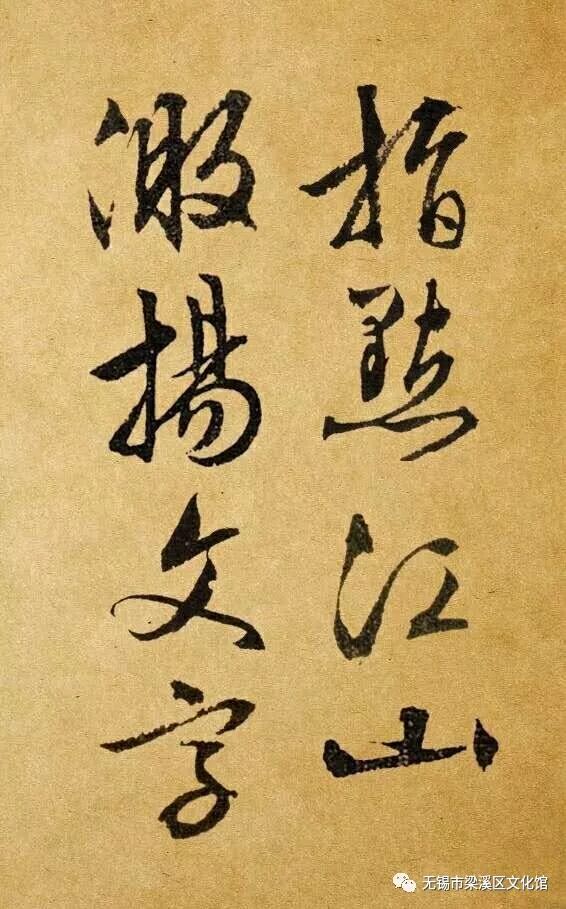 指點江山
激揚文字
无锡市梁溪区文化馆